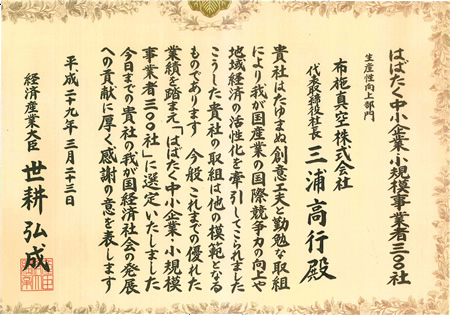 はばたく中小企業・小規模事業者三〇〇社
生産性向上部門
布施真空株式会社
代表取締役社長 三浦高行殿
貴社はたゆまぬ創意工夫と勤勉な取組
により我が国産業の国際競争力の向上や
地域経済の活性化を牽引してこられました
こうした貴社の取組は他の模範となる
ものであります 今般 これまでの優れた
業績を踏まえ「はばたく中小企業・小規模
事業者三〇〇社」に選定いたしました
今日までの貴社の我が国経済社会の発展
への貢献に厚く感謝の意を表します
平成二十九年三月二十三日
経済産業大臣 世耕弘成